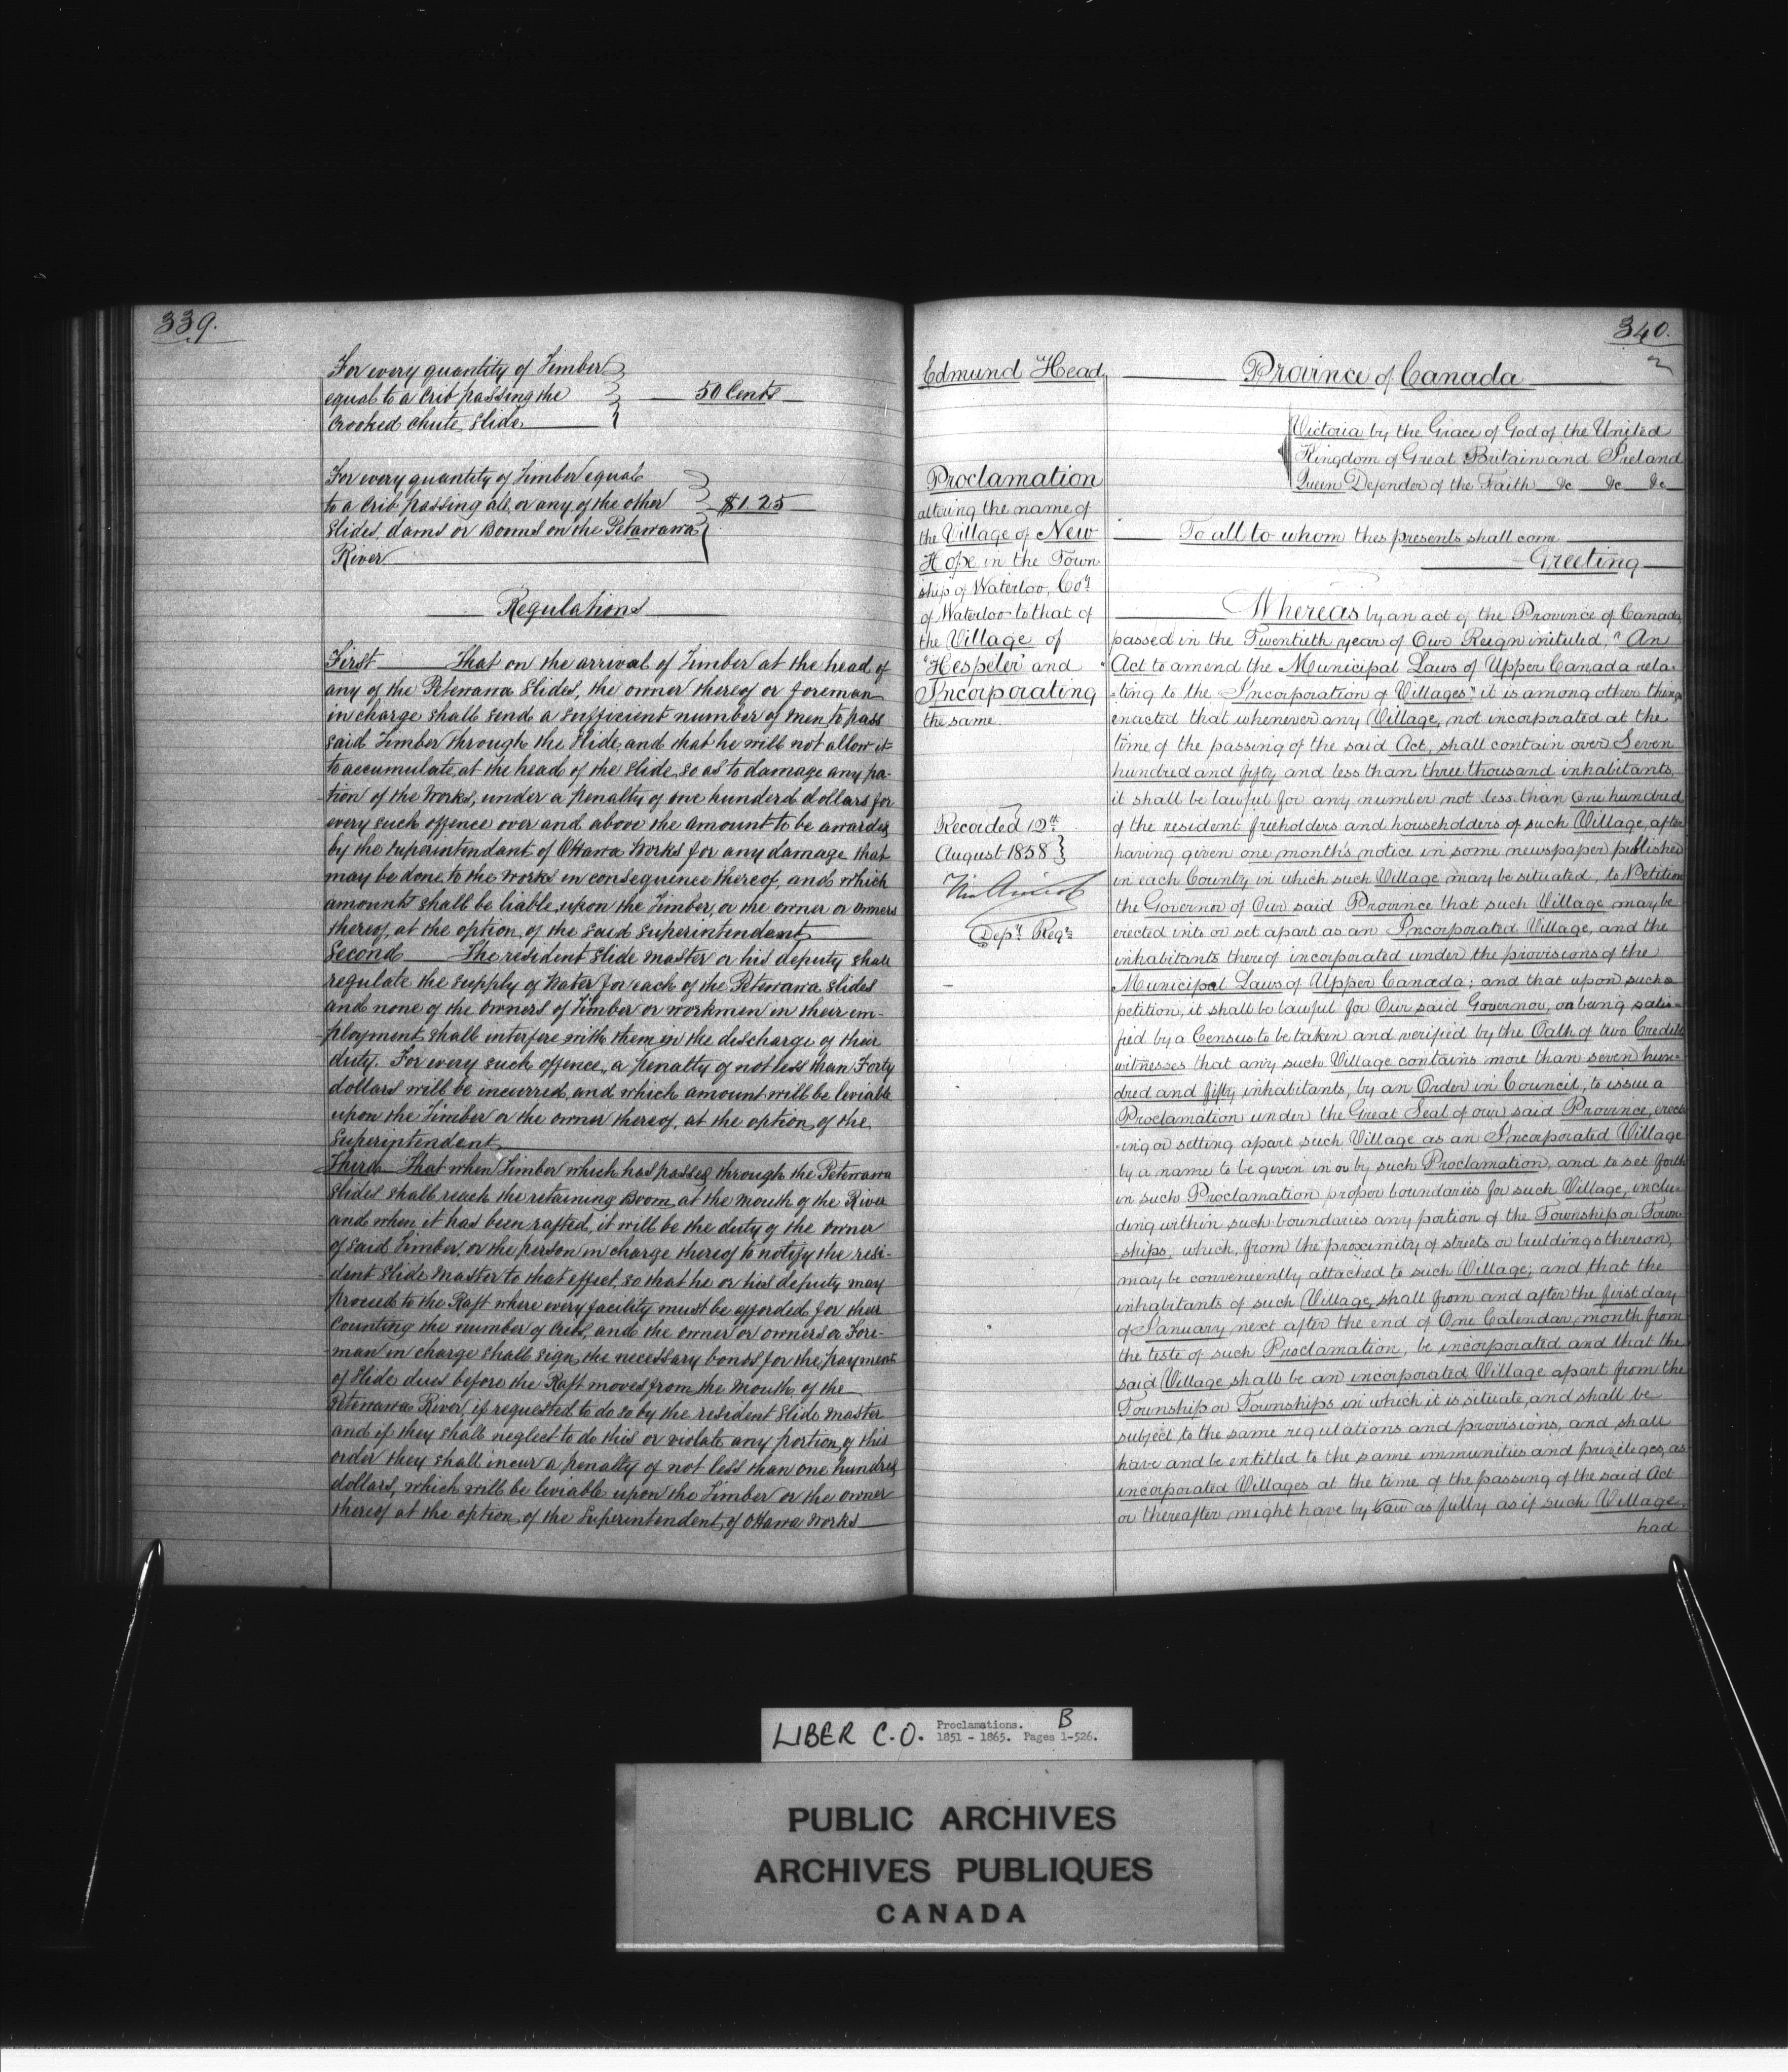 339.
For every quantity of Timber
equal to a Crib passing the
Crooked chute, Slide
50 Cents
For every quantity of Timber equal
to a Crib passing all or any of the other
Slides, dams or Booms on the Petawawa
River
$1.25
Regulations
First That on the arrival of Timber at the head of
any of the Petewawa Slides, the owner thereof or foreman
in charge shall send a sufficient number of men to pass
said Timber through the Slide, and that he will not allow it
to accumulate, at the head of the Slide, so as to damage any po-
-tion of the Works, under a penalty of one hunderd dollars for
every such offence over and above the amount to be awarded
by the Superintendant of Ottawa Works for any damage that
may be done to the Works in consequence thereof, and which
amount shall be liable, upon the Timber, or the owner or owners
thereof, at the option, of the said Superintendent
Second The resident Slide Master or his deputy shall
regulate the supply of Water for each of the Petewawa Slides
and none of the owners of Timber or workmen in their em-
-ployment shall interfere with them in the discharge of their
duty. For every such offence, a penalty of not less than Forty
dollars will be incurred, and which amount will be leviable
upon the Timber or the owner thereof, at the option, of the
Superintendent
Third That when Timber which has passed through the Petewawa
Slides shall reach the retaining Boom, at the mouth of the River
and when it has been rafted, it will be the duty of the owner
of said Timber, or the person in charge thereof to notify the resi-
-dent Slide Master to that effect, so that he or his deputy may
proceed to the Raft where every facility must be afforded for their
Counting the number of Cribs, and the owner or owners or Fore-
-man in charge shall sign, the necessary bonds for the, payment
of Slide dues before the Raft moves from the Mouth of the
Petewawa River, if requested to do so by the resident Slide Master
and if they shall neglect to do this or violate any portion, of this
order they shall incur a penalty of not less than one hundred
dollars, which will be leviable upon the Timber or the owner
thereof at the option, of the Superintendent, of Ottawa Works
340.
Edmund Head
Province of Canada
Victoria by the Grace of God of the United
Kingdom of Great Britain and Ireland
Queen Defender of the Faith &c &c &c
Proclamation
altering the name of
the Village of New
Hope in the Town-
ship of Waterloo, Coy
of Waterloo to that of
the Village of
"Hespeler" and
Incorporating
the same
Recorded 12th
August 1858
Depy Regr
To all to whom thes presents shall come
Greeting
Whereas by an act of the Province of Canada,
passed in the Twentieth year of Our Reign inituled, "An
"Act to amend the Municipal Laws of Upper Canada rela-
-ting to the Incorporation of Villages" it is among other things
enacted that whenever any Village, not incorporated at the
time of the passing of the said Act, shall contain over Seven
hundred and fifty and less than three thousand inhabitants,
it shall be lawful for any number not less than One hundred
of the resident freeholders and householders of such Village, after
having given one month's notice in some newspaper published
in each County in which such Village may be situated, to Petition
the Governor of Our said Province that such Village may be
erected into or set apart as an Incorporated Village, and the
inhabitants thereof incorporated under the provisions of the
Municipal Laws of Upper Canada; and that upon such a
petition, it shall be lawful for Our said Governor, on being satis-
fied by a Census to be taken and verified by the Oath of two Credible
witnesses that any such Village contains more than seven hun-
dred and fifty inhabitants, by an Order in Council, to issue a
Proclamation under the Great Seal of our said Province, erect-
-ing or setting apart such Village as an Incorporated Village
by a name to be given in or by such Proclamation, and to set forth
in such Proclamation proper boundaries for such Village, inclu-
ding within such boundaries any portion of the Township or Town-
-ships, which, from the proximity of streets or buildings thereon,
may be conveniently attached to such Village; and that the
inhabitants of such Village, shall from and after the first day
of January next after the end of One Calendar month from
the teste of such Proclamation, be incorporated and that the
said Village shall be an incorporated Village apart from the
Township or Townships in which it is situate, and shall be
subject to the same regulations and provisions, and shall
have and be entitled to the same immunities and privileges, as
incorporated Villages at the time of the passing of the said Act
or thereafter might have by Law as fully as if such Village
had
LIBER C.O. Proclamations. B
1851 - 1865. Pages 1-526.
PUBLIC ARCHIVES
ARCHIVES PUBLIQUES
CANADA